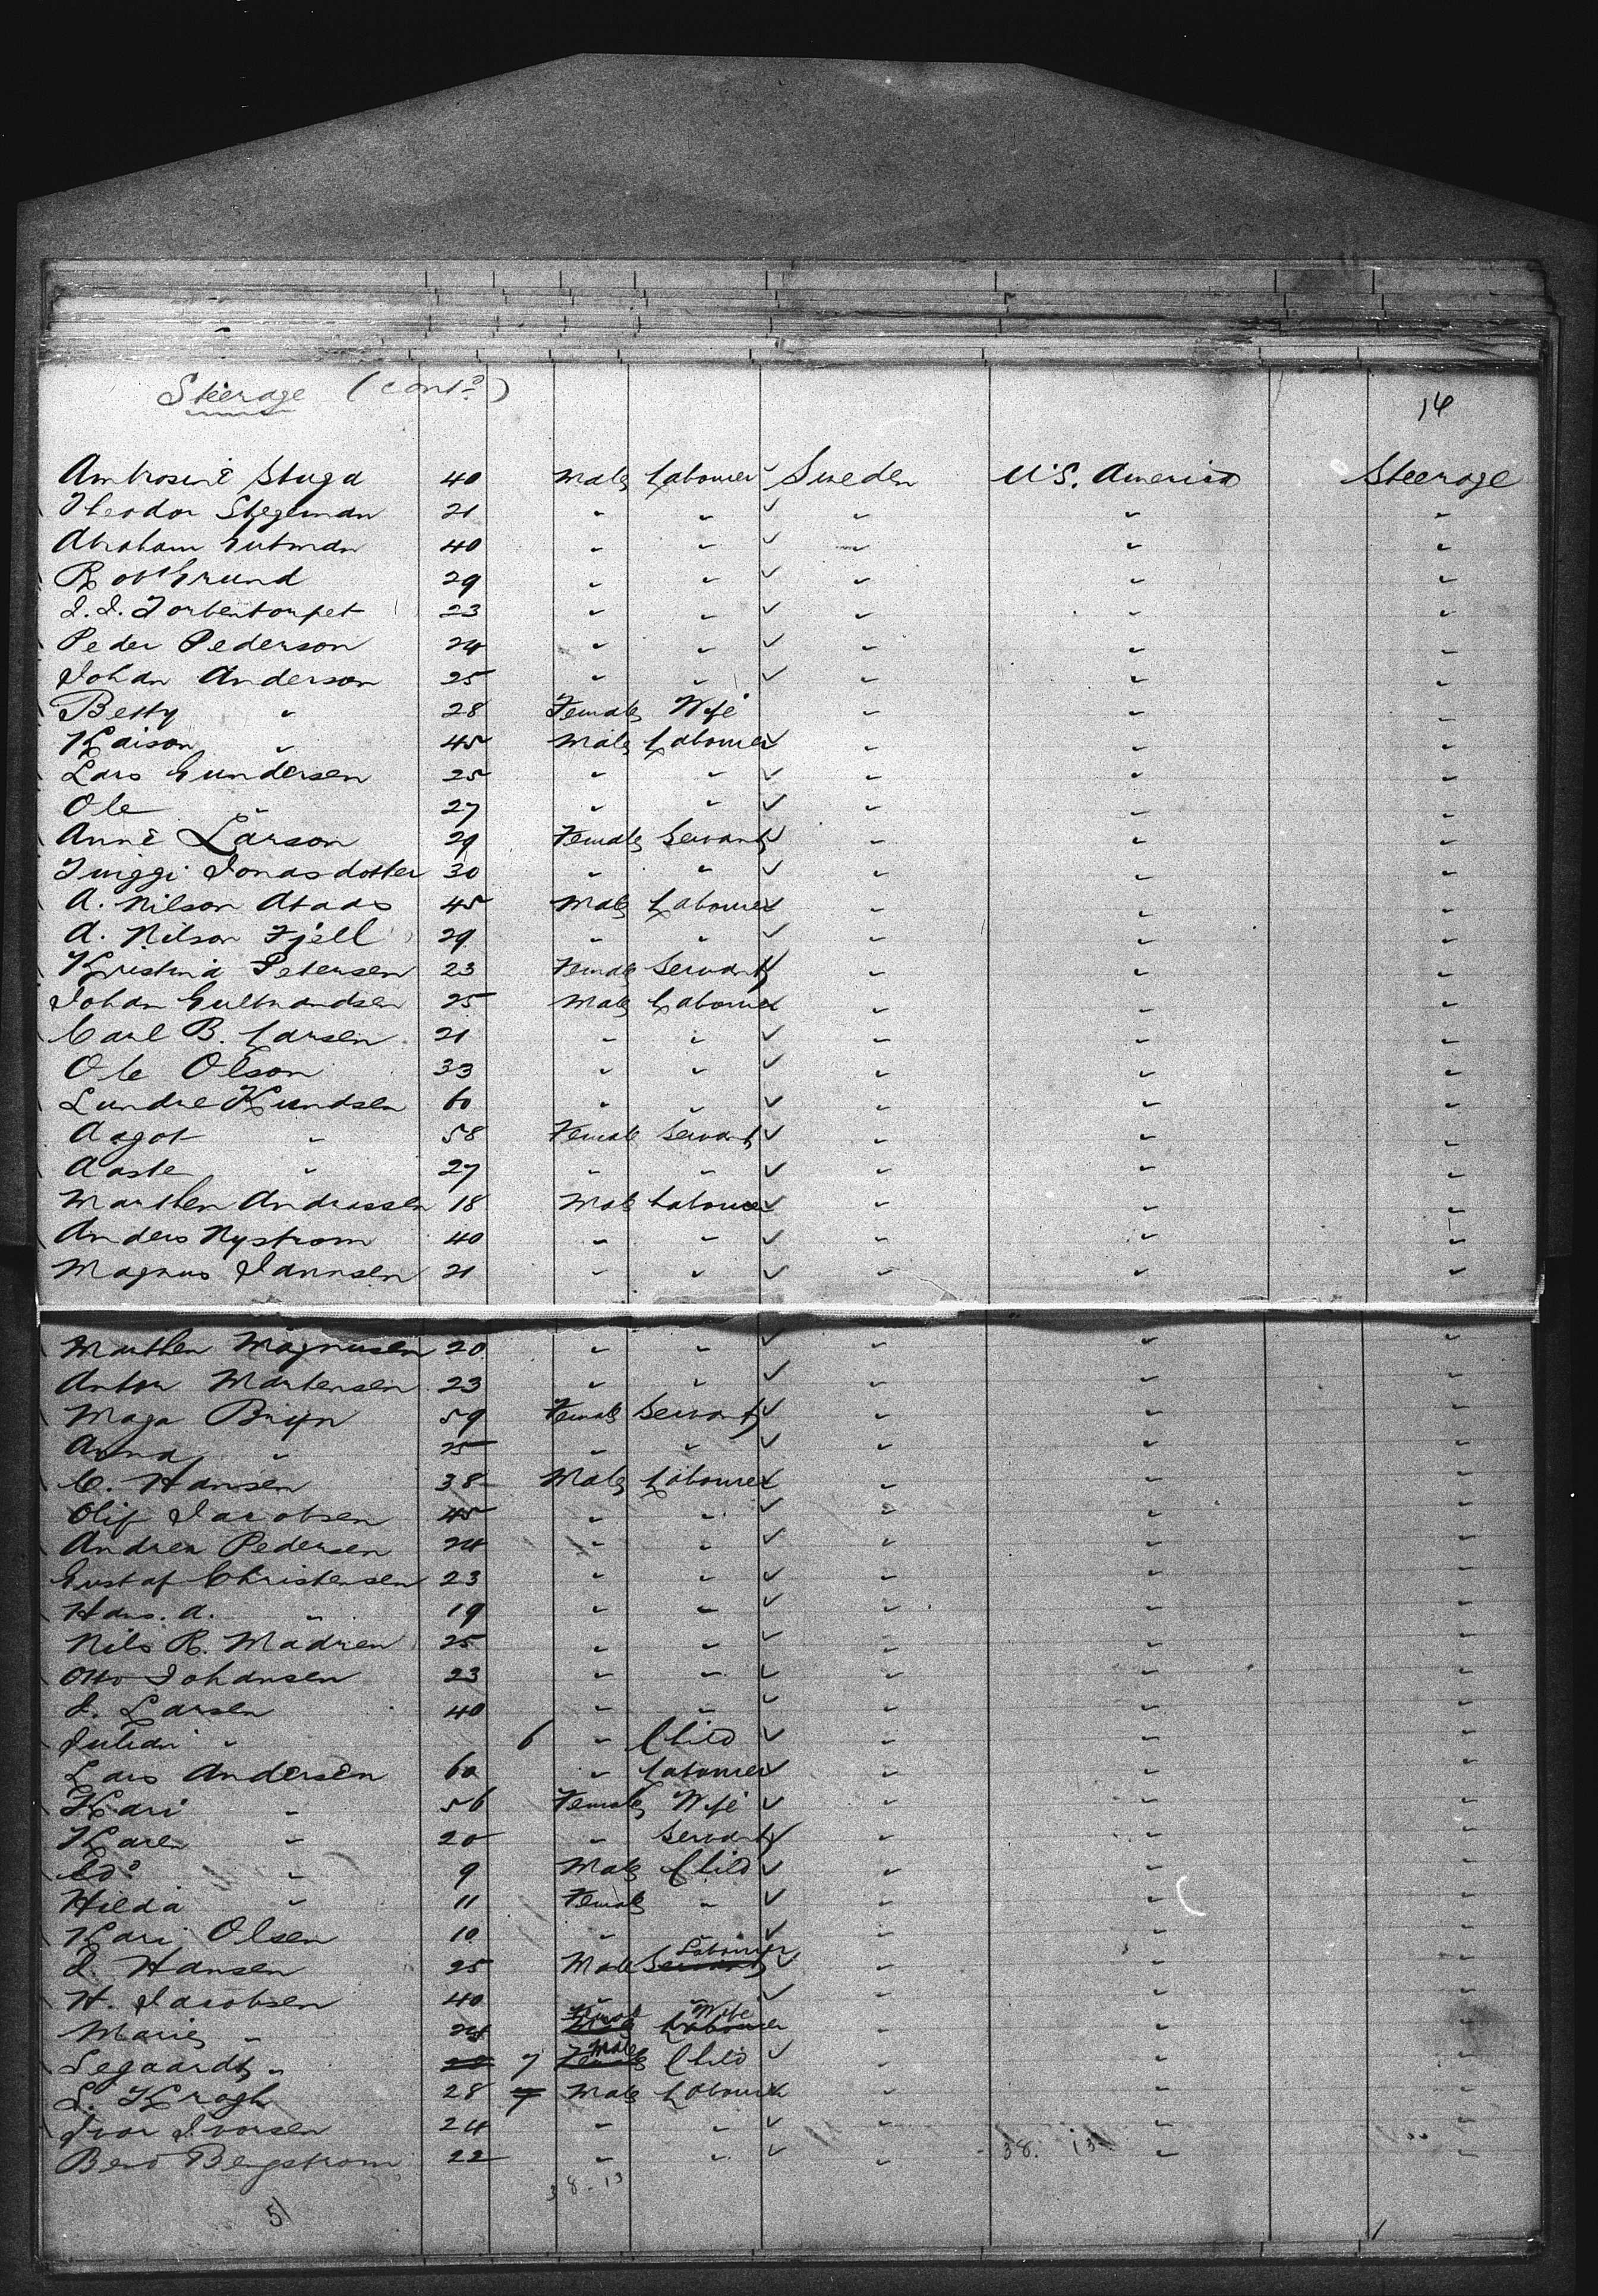 Steerage (contd)
14
Ambrosine Stuga 40 Male Labourer Sweden U.S. America Steerage
Theodor Stegeman 21 " " " " "
Abraham Gutman 40 " " " " "
Rob Grund 29 " " " " "
J. J. Torbentorpet 23 " " " " "
Peder Pederson 24 " " " " "
Johan Anderson 25 " " " " "
Betty " 28 Female Wife " " "
Kaison " 45 Male Labourer " " "
Lars Gundersen 25 " " " " "
Ole " 27 " " " " "
Anne Larson 29 Female Servant " " "
Jonasdotter 30 " " " " "
A. Nilson 45 Male Labourer " " "
A. Nilson Fjell 29 " " " " "
Kristina Petersen 23 Female Servant " " "
Johan 25 Male Labourer " " "
Carl B. Larsen 21 " " " " "
Ole Olson 33 " " " " "
Lundre Kundsen 60 " " " " "
Aagot " 58 Female Servant " " "
Aaste " 27 " " " " "
Marthen Andrassen 18 Male Labourer " " "
Anders Nystrom 40 " " " " "
Magnus Jannsen 21 " " " " "
Marthen Magnusen 20 " " " " "
Anton Martensen 23 " " " " "
Maga Bryn 59 Female Servant " " "
Anna " 25 " " " " "
C. Hansen 38 Male Labourer " " "
Olif Jacobsen 45 " " " " "
Andrea Pedersen 24 " " " " "
Gustaf Christensen 23 " " " " "
Hans. A. " 19 " " " " "
Nils R. Madsen 25 " " " " "
Otto Johansen 23 " " " " "
J. Larsen 40 " " " " "
Julian " 6 " Child " " "
Lars Andersen 60 " Labourer " " "
Kari " 56 Female Wife " " "
Karen " 20 " Servant " " "
Edo " 9 Male Child " " "
Hilda " 11 Female " " " "
Kari Olsen 10 " " " " "
J. Hansen 25 Male Servant Labourer " " "
H. Jacobsen 40 " " " " "
Marie " 24 Male Female Labourer Wife " " "
Segaardt " 7 Female Male Child " " "
L. Krogh 28 7 Male Labourer " " "
Ivor Ivorsen 24 " " " " "
Bend Bergstrom 22 " " " " "
38. 13
38-13
51